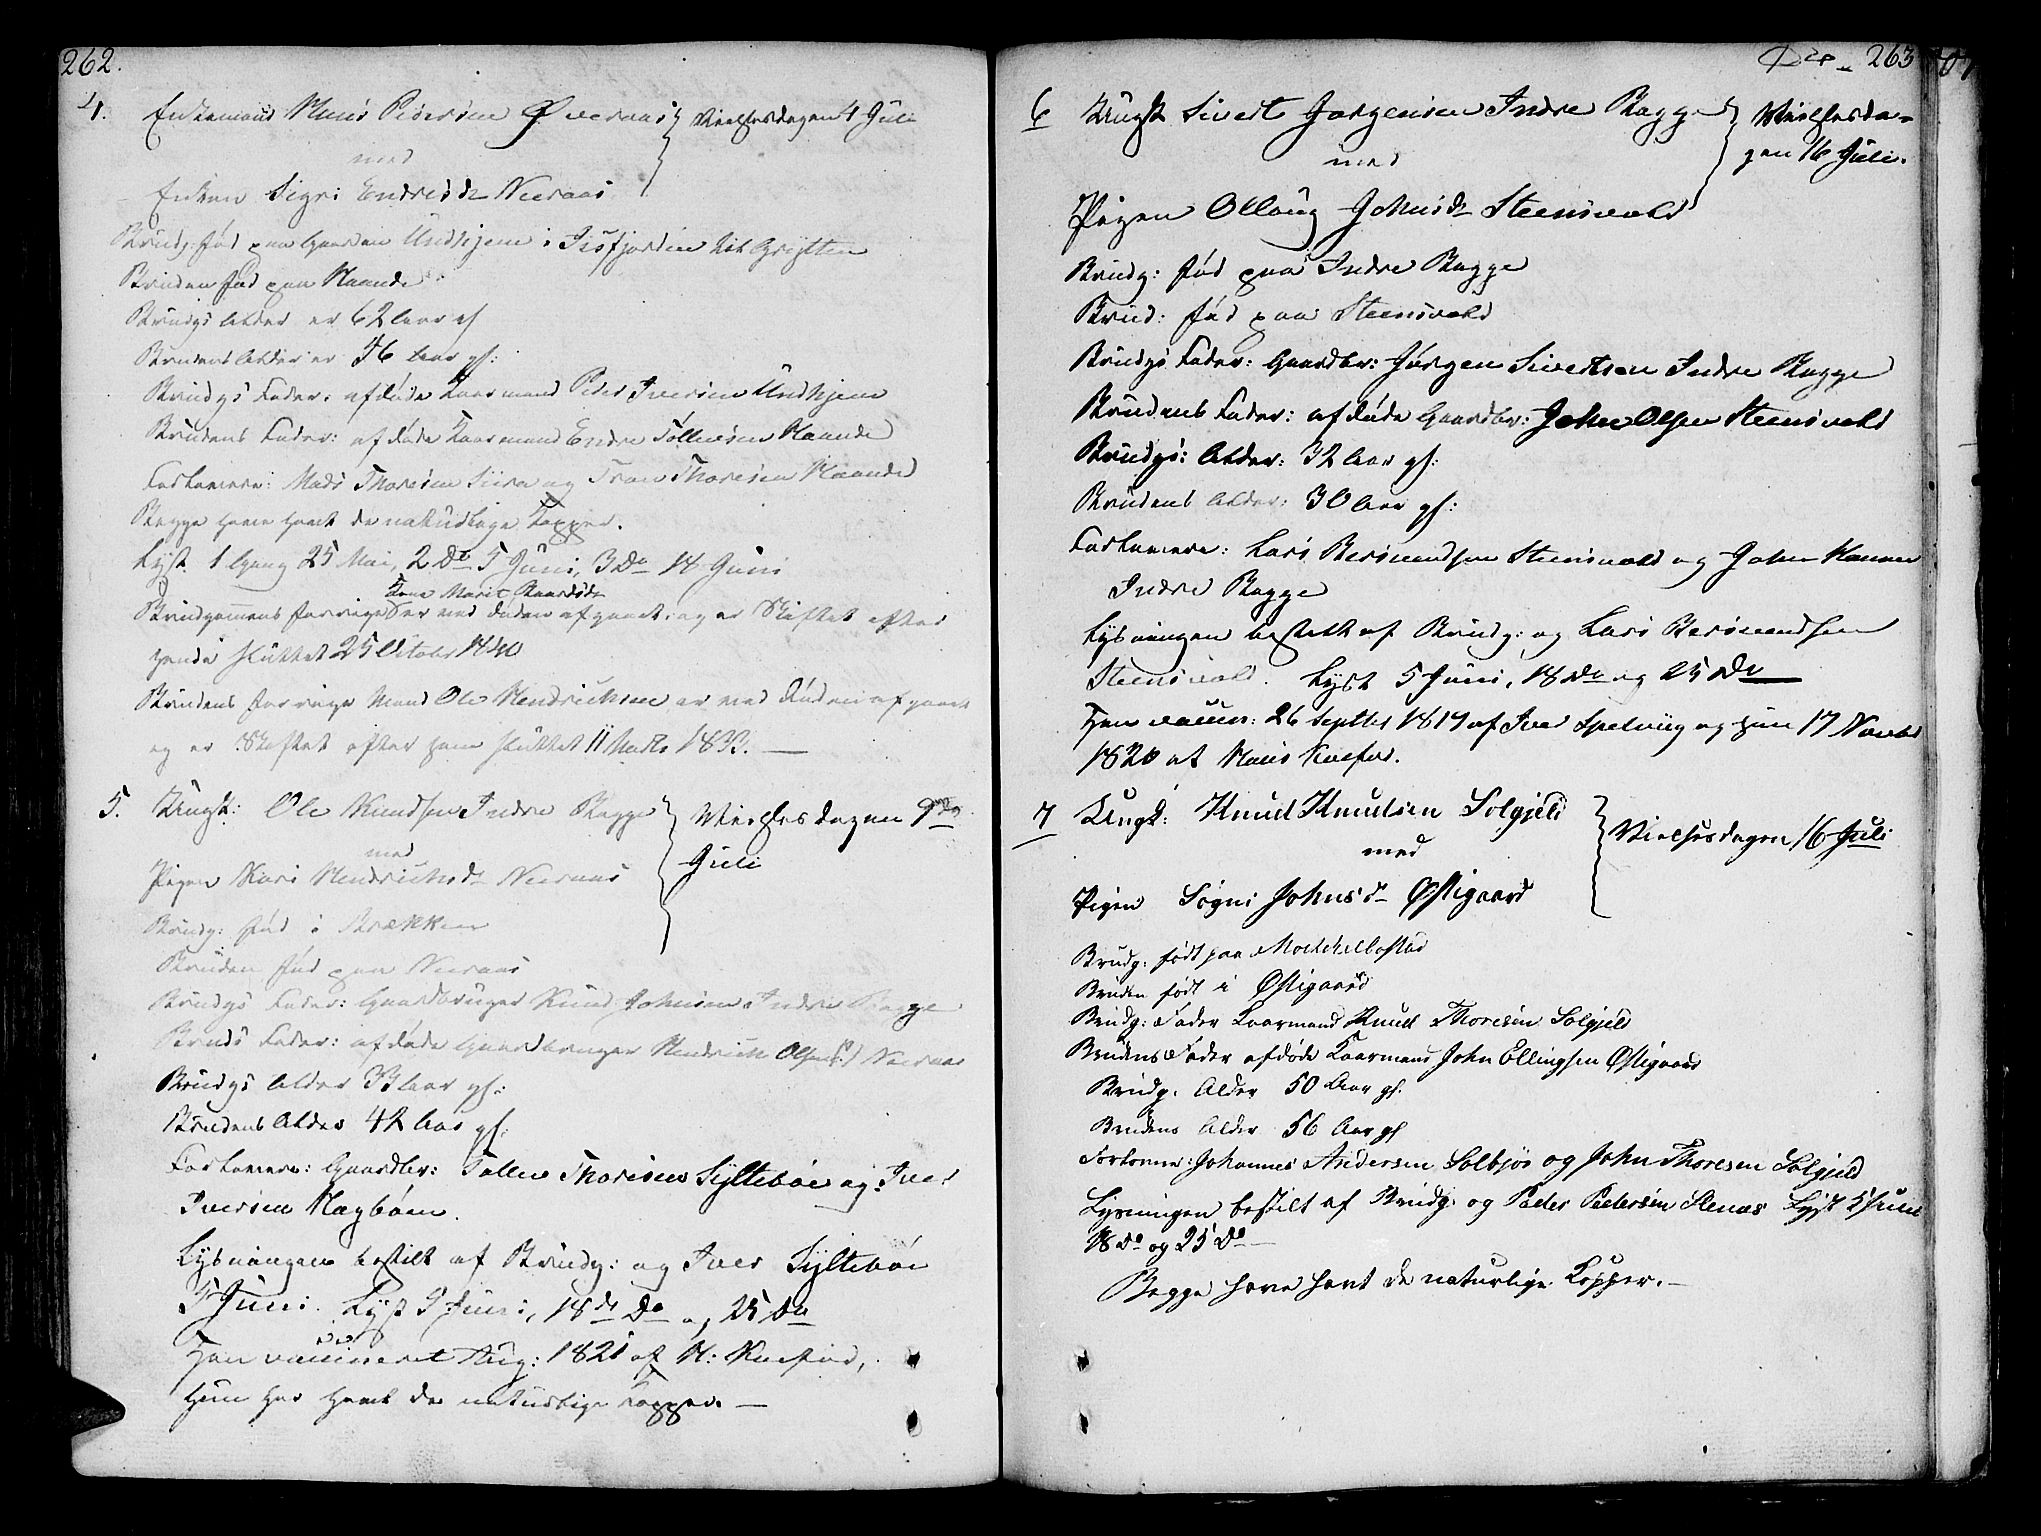 262.
4. Enkemand Hans Pedersen Øveraas Vielsesdagen 4 Juli
med
Enken Sigri Endresdr Neeraas
Brudg: fød paa Gaarden Undhjem i Isfjorden udi Grytten
Bruden fød paa Haande
Brudgs Alder er 62 Aar gl
Brudens Alder er 46 Aar gl:
Brudgs Fader: afdøde Kaarmand Peder Iversen Undhjem
Brudens Fader: afdøde Kaarmand Endre Tollevsen Haande
Forlovere: Mads Thoresen og Thoresen Haande
Begge have havt de naturlige Kopper.
Lyst 1 Gang 25 Mai, 2 Do 5 Juni, 3 Do 18 Juni
Kone Marit
Brudgommens forrige er ved Døden afgaaet og er Skiftet efter
hende sluttet 25 Octobr 1840
Brudens forrige Mand Ole Hendrichsen er ved Døden afgaaet
og er Skiftet efter ham sluttet 11 Marts 1833.
5. Ungk: Ole Knudsen Indre Bagge Vielsesdagen 9de
med Juli
Pigen Kari Hendrichsdr Neeraas
Brudg: fød i Brekken
Bruden fød paa Neeraas
Brudgs Fader: Gaardbruger Knud Johnsen Indre Bagge
Bruds Fader: afdøde Gaardbruger Hendrich Olsen Neeraas
Brudgs Alder 33 Aar gl:
Brudens Alder 42 Aar gl:
Forlovere: Gaardbr: Tollev Thoresen Syltebøe og Iver
Iversen Hagbøen.
Lysningen bestilt af Brudg: og Iver Syltebøe
5 Juni. Lyst 5 Juni, 18de Do og 25 Do
Han vaccineret Aug: 1821 af H: Kaefod,
Hun har havt de naturlige Kopper.
263
6 Ungk Sivert Jørgensen Indre Bagge Vielsesda-
med gen 16 Juli.
Pigen Ollaug Johnsdr Steensvold
Brudg: fød paa Indre Bagge
Brud: fød paa Steensvold
Brudgs Fader: Gaardbr: Jørgen Sivertsen Indre Bagge
Brudens Fader: afdøde Gaardbr: John Olsen Steensvold
Brudgs: Alder: 32 Aar gl:
Brudens Alder: 30 Aar gl:
Forlovere: Lars Steensvold og John Hansen
Indre Bagge
Lysningen bestilt af Brudg: og Lars
Steensvold. Lyst 5 Juni, 18 Do og 25 Do
Han vaccin: 26 Septbr 1817 af Iver Spelviig og hun 17 Novbr
1820 af Hans Kaefod.
7 Ungk: Knud Knudsen Solgjeld Vielsesdagen 16 Juli
med
Pigen Søgni Johnsdr Østigaard
Brudg: født paa Moekelbostad
Bruden født i Østigaard
Brudg: Fader Kaarmand Knud Thoresen Solgjeld
Brudens Fader afdøde Kaarmand John Ellingsen Østigaard
Brudg: Alder 50 Aar gl.
Brudens Alder 56 Aar gl
Forlovere: Johannes Andersen Solbjør og John Thoresen Solgjeld
Lysningen bestilt af Brudg: og Peder Pedersen Stenæs Lyst 5 Juni
18 Do og 25 Do
Begge have havt de naturlige Kopper.